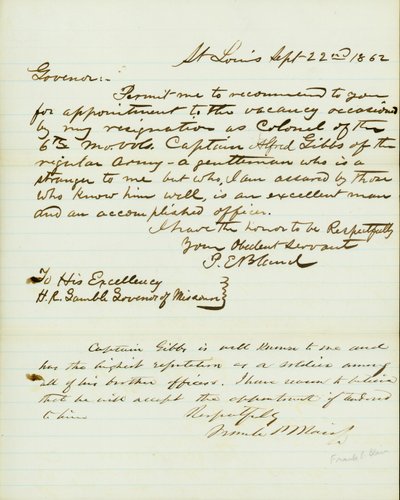 St Louis Sept 22nd 1862
Govenor:-
Permit me to recommend to you
for appointment to the vacancy occasioned
by my resignation as Colonel of the
6th Mo vols. Captain Alfred Gibbs of the
regular Army - a gentleman who is a
stranger to me but who, I am assured by those
who know him well, is an excellent man
and an accomplished officer.
I have the honor to be Respectfully
Your Obedient Servant
P. E. Bland
To His Excellency
H. R. Gamble Govenor of Missouri
Captain Gibbs is well known to me and
has the highest reputation as a soldier among
all of his brother officers. I have reason to believe
that he will accept the appointment if tendered
to him
Respectfully
Frank P. Blair Jr
Frank P. Blair